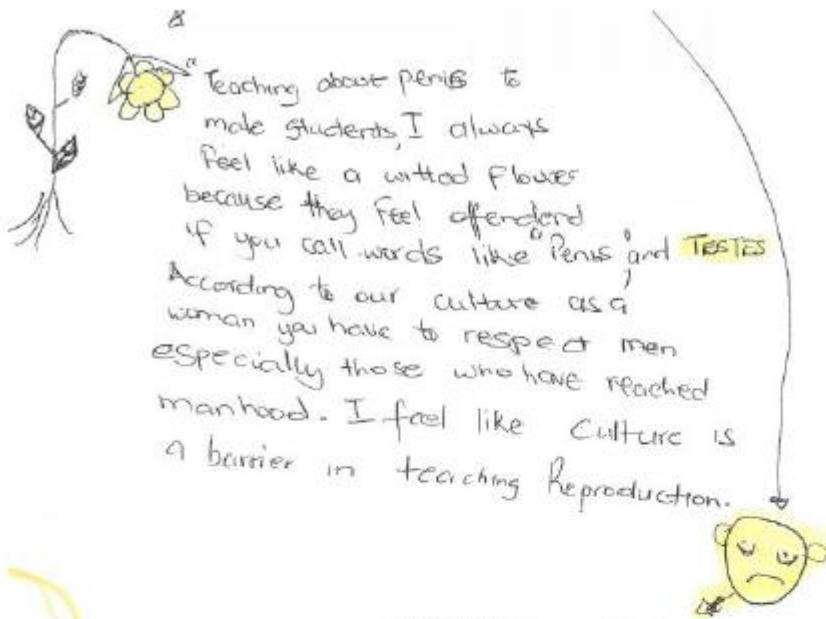 "Teaching about penis to
male students, I always
feel like a witted flower
because they feel offenderd
if you call words like "Penis" and TESTES
According to our culture as a
woman you have to respect men
especially those who have reached
manhood. I feel like culture is
a barrier in teaching Reproduction.